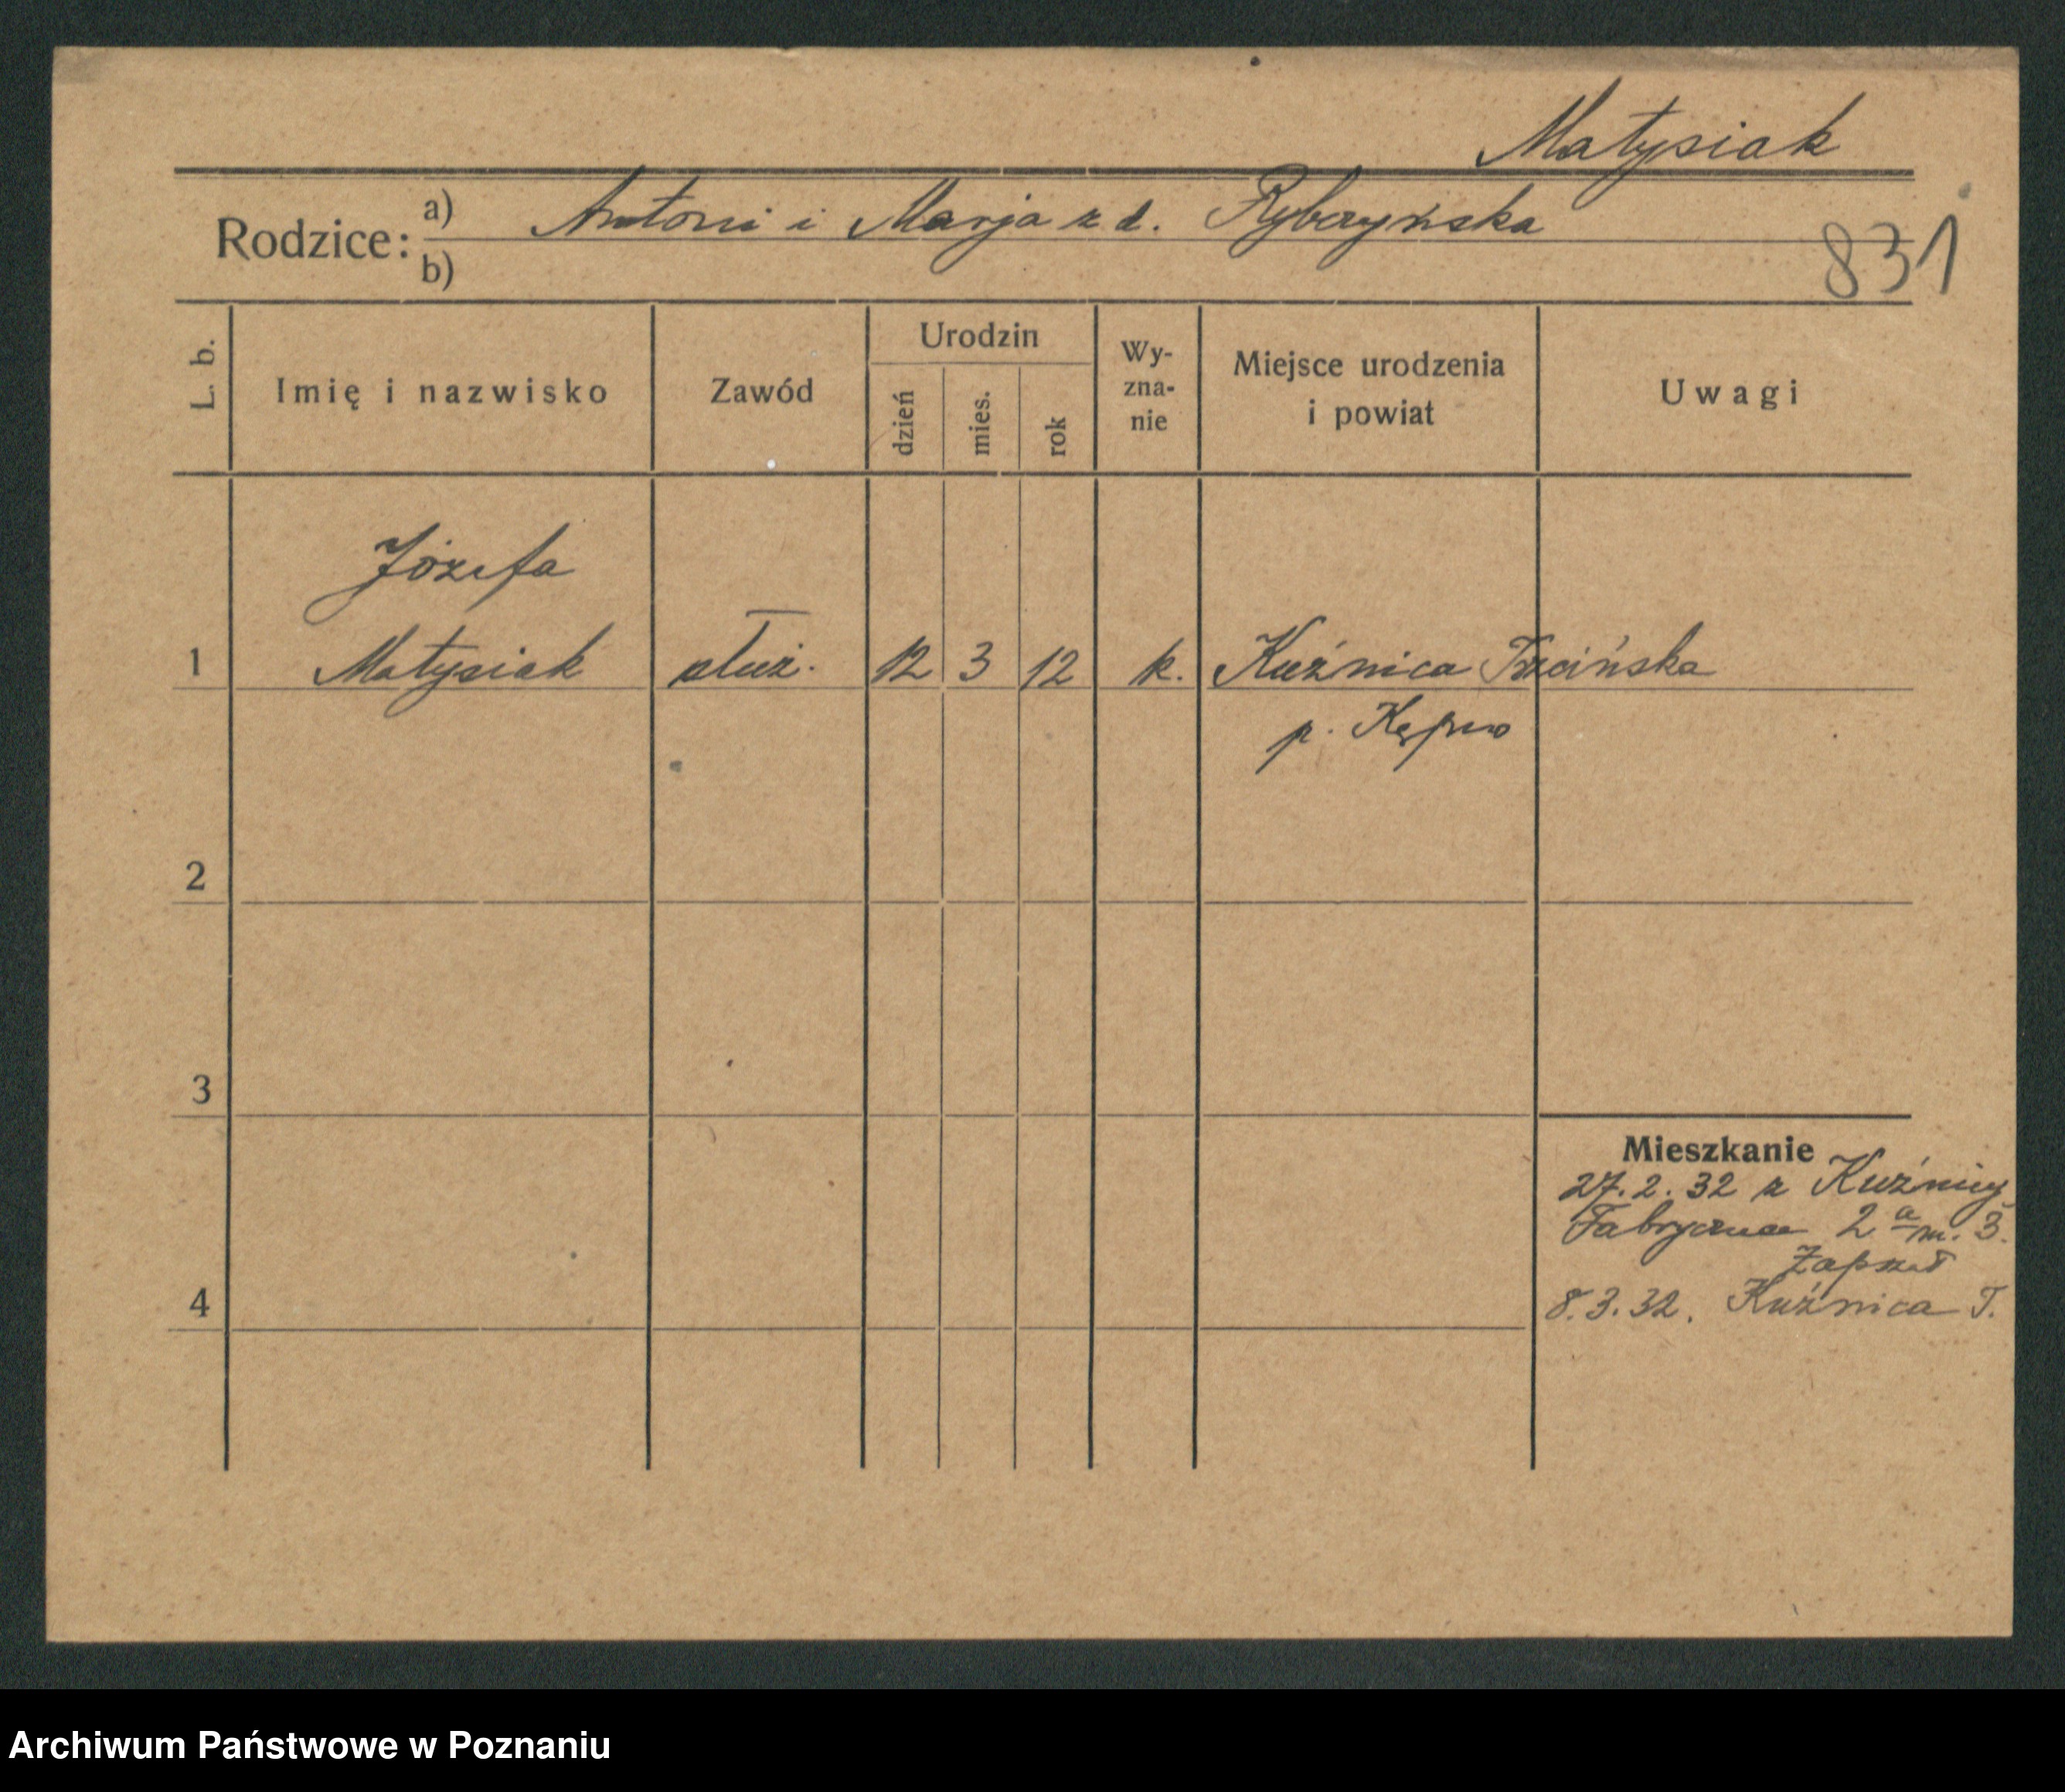 Matysiak
Rodzice: a) Antoni i Marja z d. Rybczyńska
b)
831
L. b.
Imię i nazwisko
Zawód
Urodzin
dzień
mies.
rok
Wy-
zna-
nie
Miejsce urodzenia
i powiat
Uwagi
Józefa
1 Matysiak służ. 12 3 12 k. Kuźnica Trzcińska
p. Kępno
2
3
Mieszkanie
27.2.32 z Kuźnicy
Fabryczna 2 a m. 3.
Zapszał
4
8.3.32. Kuźnica T.
Archiwum Państwowe w Poznaniu